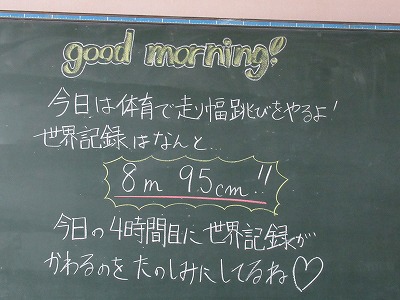 good morning!
今日は体育で走り幅跳びをやるよ!
世界記録はなんと...
8m 95cm!!
今日の4時間目に世界記録が
かわるのをたのしみにしてるね♡